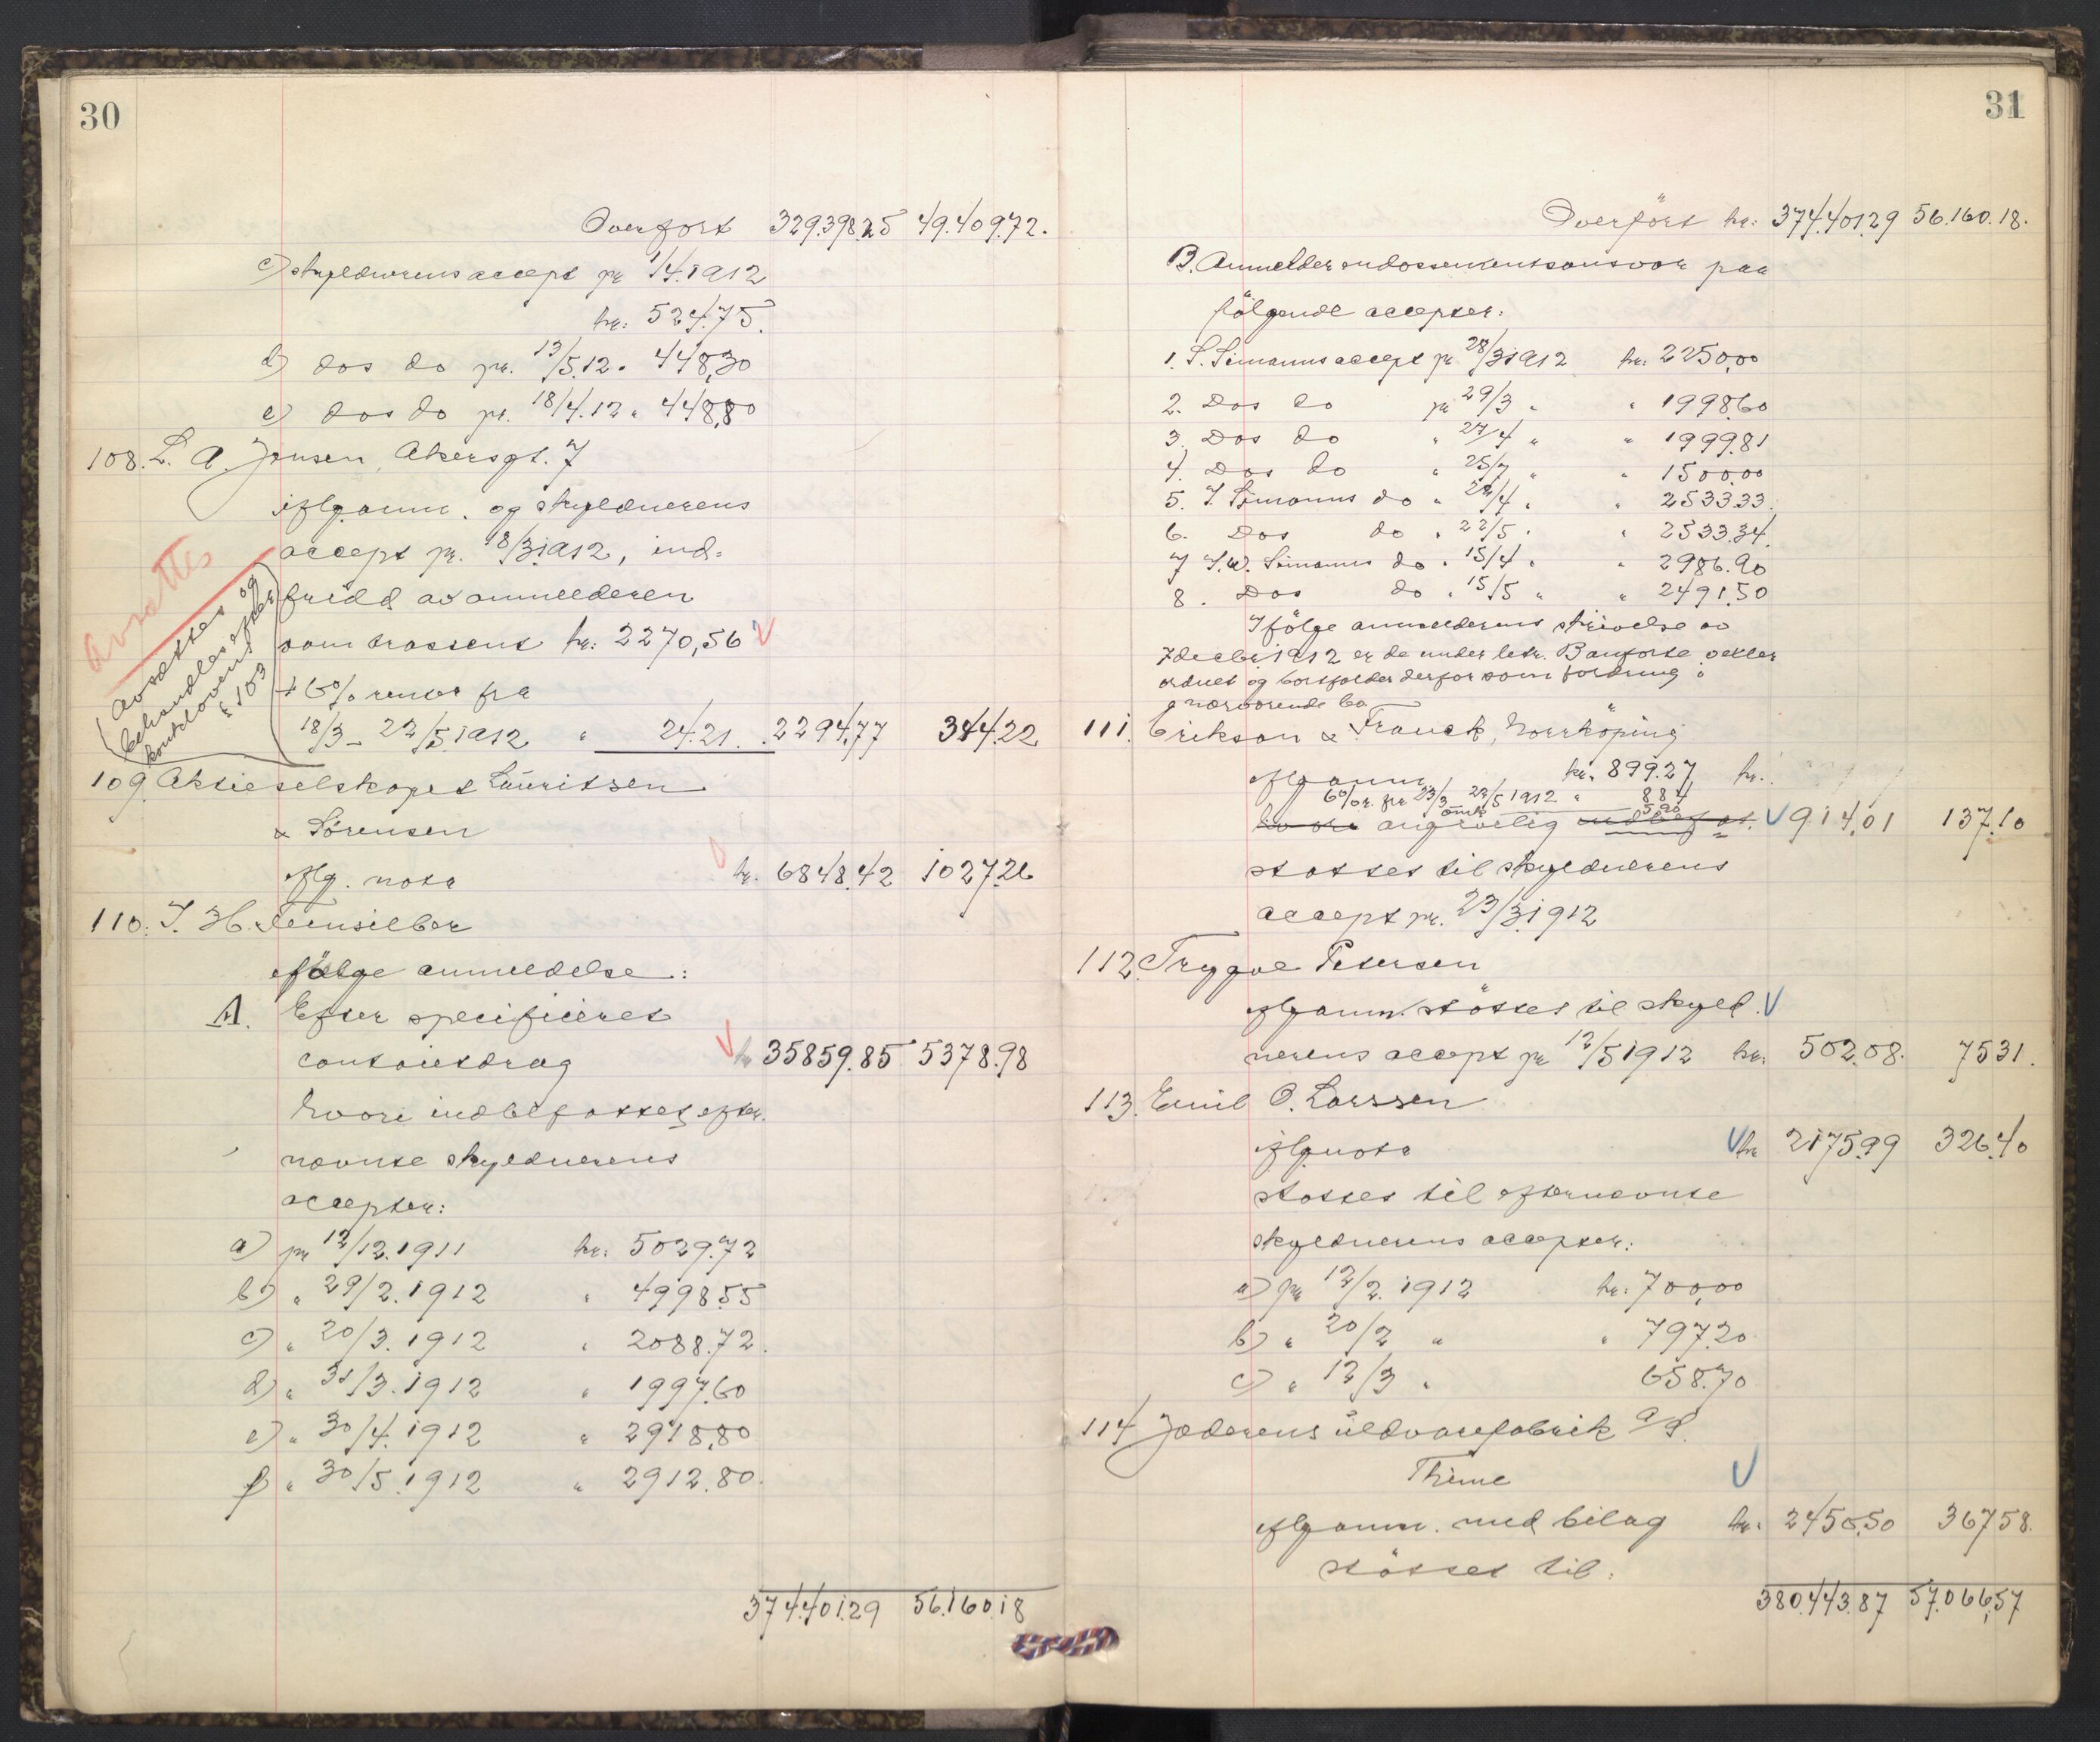 30
Overført 329.398.25 49.409.72.
c) skyldnerens accept pr 1/4.1912
kr: 524.75.
d) dos do pr. 13/5.12. 448,30
e) dos do pr. 18/4.12 " 448,80
108. L. A. Jensen, Akersgt. 7
iflg. anm. og skyldnerens
accept pr. 18/3.1912, ind-
fridd av anmelderen
som trassent kr: 2270,56
+ 6% renter fra
18/3 - 22/5.1912 " 24.21. 2294,77 344.22
Avsattes
Avsættes og
behandles efter
konkurslovens
§ 103
109. Aktieselskapet Lauritsen
& Sørensen
iflg. nota kr. 6848.42 1027.26
110. J. H. Feinsilber
ifølge anmeldelse:
A. Efter specificeret
contoutdrag kr 35859.85 5378.98
hvori indbefattes efter-
nævnte skyldnerens
accepter:
a) pr 12/12.1911 kr: 5029.72
b) " 29/2.1912 " 4998.55
c) " 20/3.1912 " 2088.72.
d) " 31/3.1912 " 1997.60
e) " 30/4.1912 " 2918,80
f) " 30/5.1912 " 2912.80.
374.401.29 56.160.18
31
Overført kr: 374.401.29 56.160.18.
B. Anmelder endossementsansvar paa
følgende accepter:
1. S. Simanns accept pr 28/3 1912 kr: 2250,00
2. Dos do pr 29/3 " " 1998.60
3. Dos do " 27/4 " " 1999.81
4. Dos do " 25/7 " " 1500.00
5. J. Simanns do " 22/4 " " 2533.33.
6. Dos do " 22/5 " " 2533.34.
7 J.W. Simanns do " 15/4 " " 2986.90
8. Dos do " 15/5 " " 2491.50
Ifølge anmelderens skrivelse av
7 decbr 1912 er de under litr. B anførte veksler
ordnet og bortfalder derfor som fordring i
nærværende bo
111. Erikson & Franck, Norrköping
iflg anm kr. 899.27 kr.
6% r. fra 23/3 - 22/5 1912 " 8 84
omk 5 90
angivelig 914,01 137.10
støttes til skyldnerens
accept pr. 23/3.1912
112. Trygve Petersen
iflg anm. støttes til skyld-
nerens accept pr 12/5 1912 kr. 502.08. 75 31.
113. Emil O. Larssen
iflg nota kr 2175.99 326.40
støttes til efternævnte
skyldnerens accepter:
a) pr 12/2.1912 kr: 700,00
b) " 20/2 " " 797.20
c) " 12/3 " 658.70
114 Jæderens uldvarefabrik A/S.
Thime
iflg anm. med bilag kr. 2450.50 367 58.
støttes til:
380.443.87 57.066,57